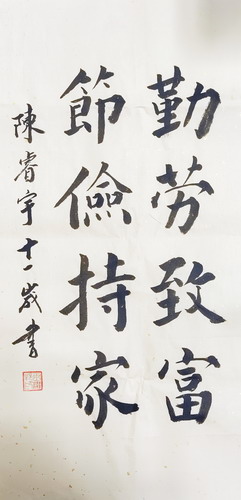 勤劳致富
節儉持家
陳睿宇十一歲書